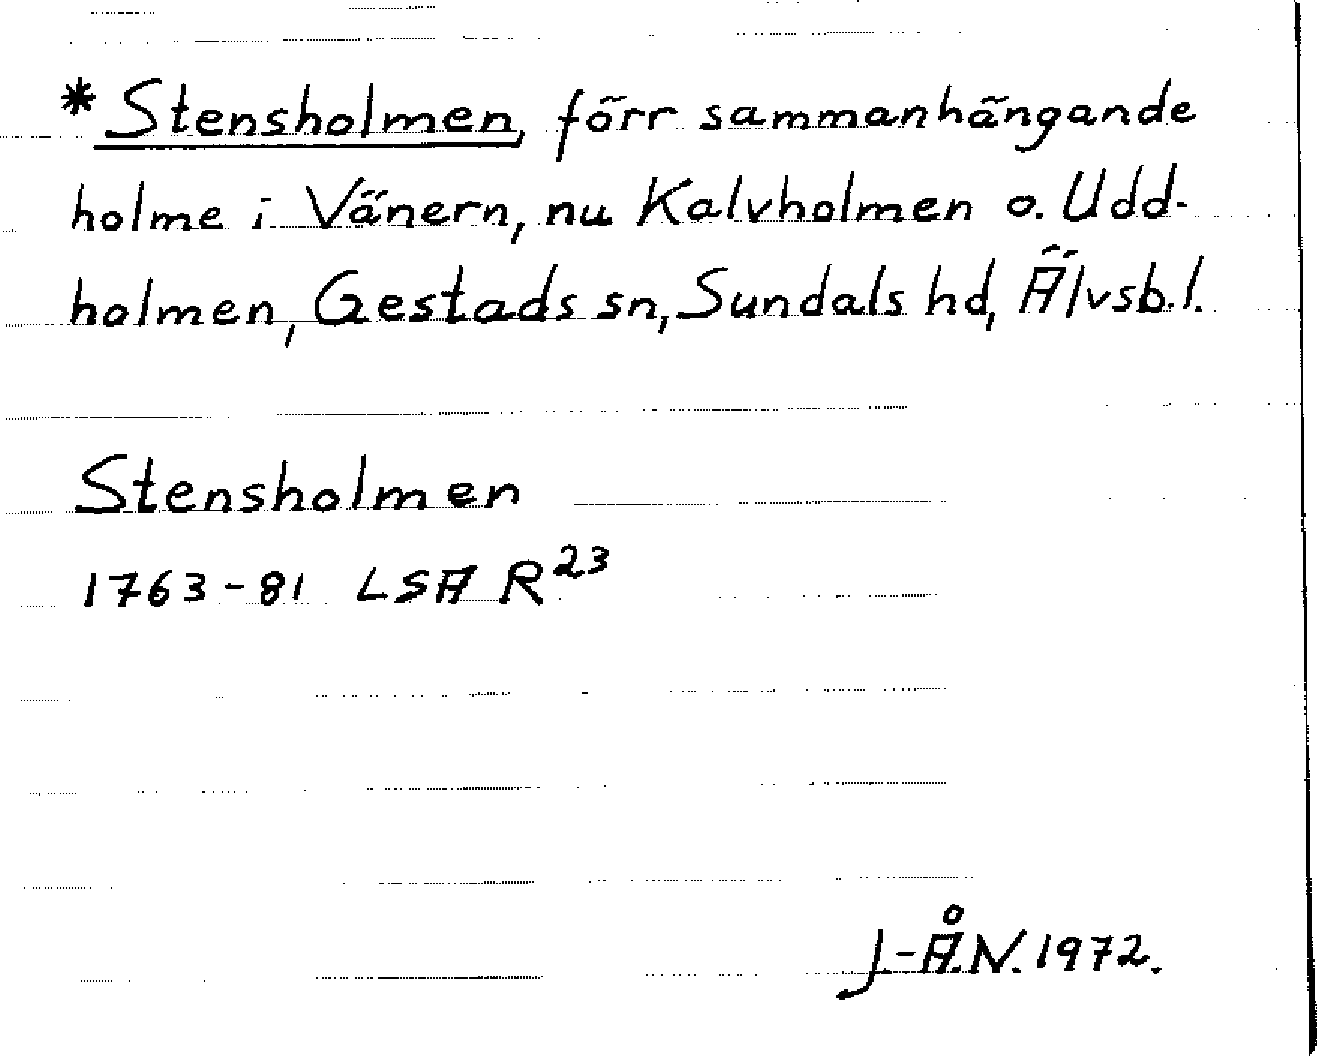 * Stensholmen, förr sammanhängande
holme i Vänern, nu Kalvholmen o. Udd-
holmen, Gestads sn, Sundals hd, Älvsb.l.
Stensholmen
1763-81 LSA R23
J.-Å.N. 1972.